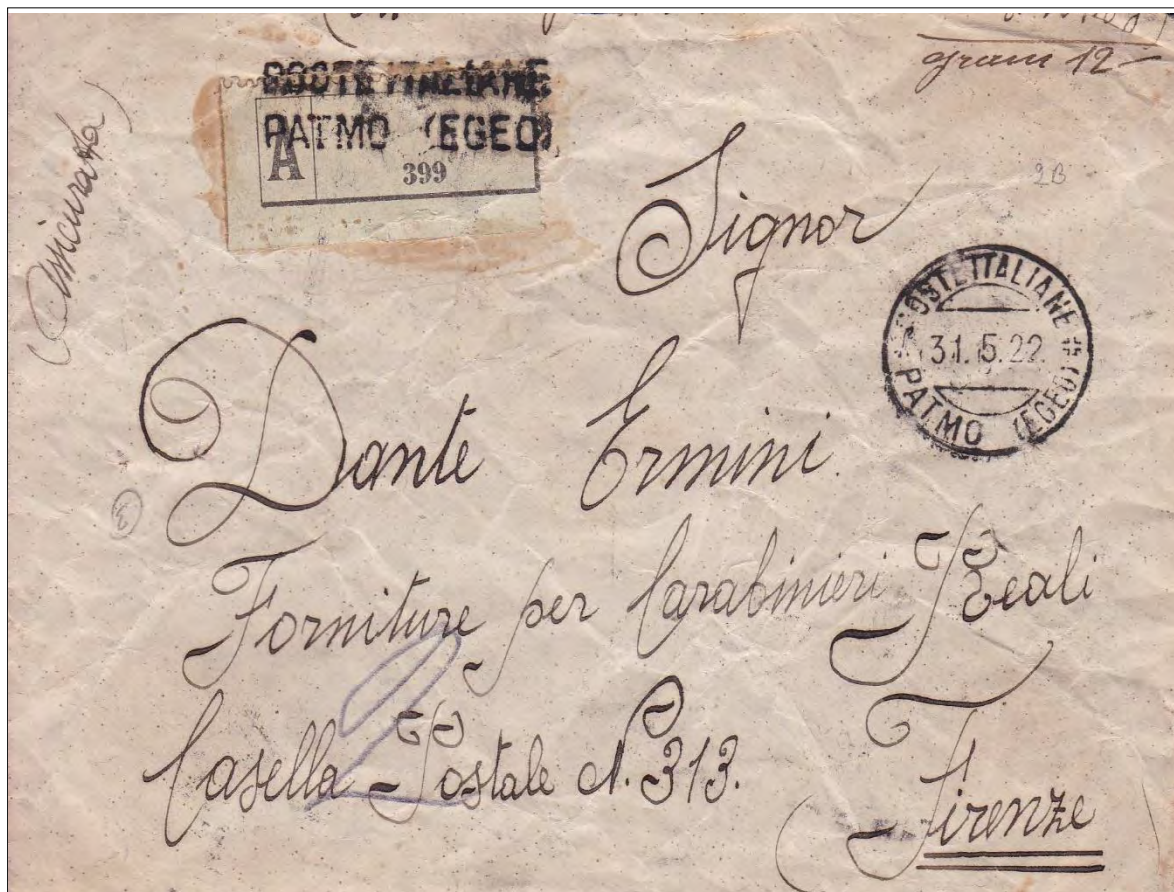 gram 12-
(Assicurata)
POSTE ITALIANE
PATMO (EGEO)
A
399
2B
Signor
POSTE ITALIANE
31.5.22.
PATMO (EGEO)
Dante Ermini.
3
Forniture per Carabinieri Reali
Casella Postale N. 313.
(Firenze